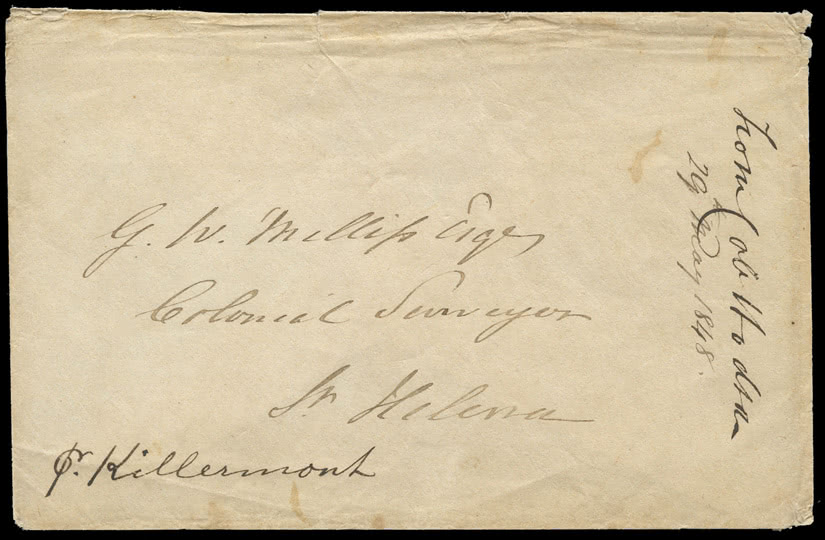 G. W. Melliss Esqre
Colonial Surveyor
St. Helena
pr. Killermont
from Col Hodson
29th May 1848.